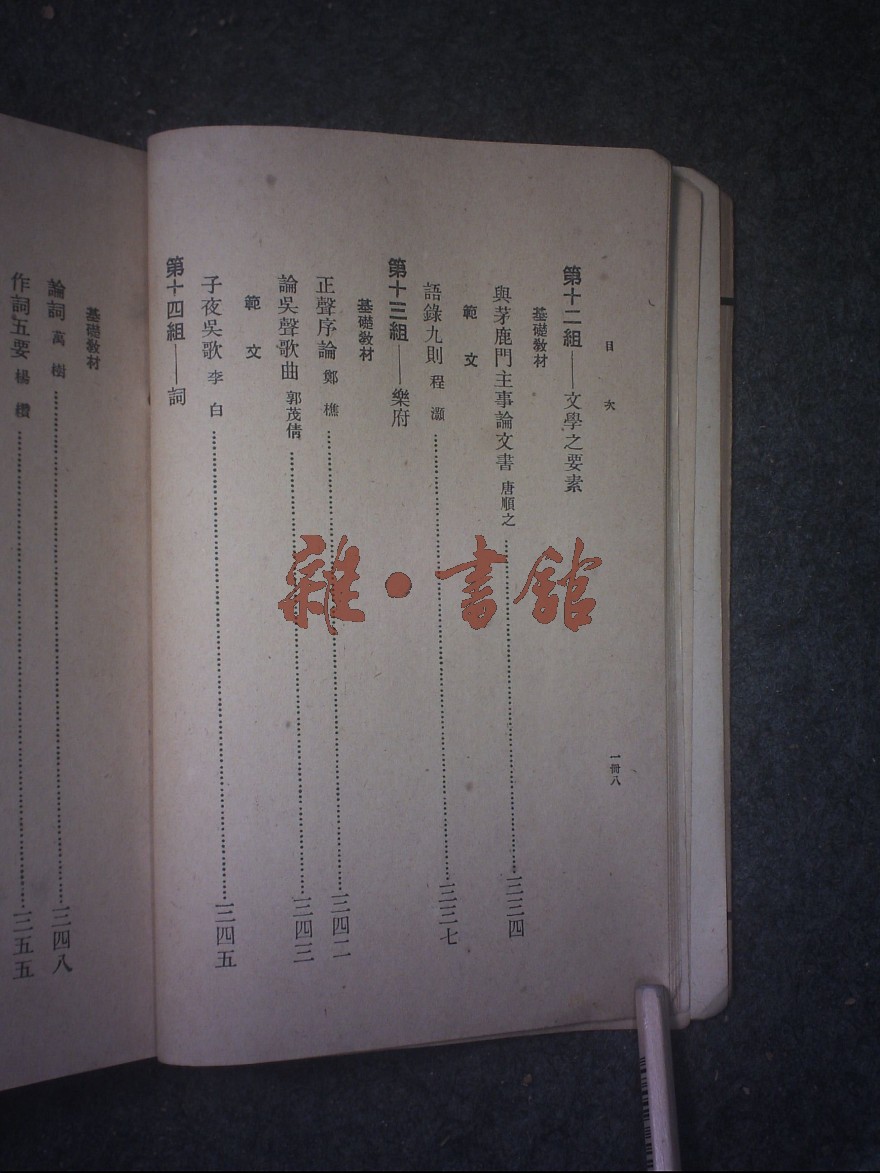 目次
一冊八
第十二組——文學之要素
基礎教材
與茅鹿門主事論文書 唐順之……三三四
範文
語錄九則 程灝……三三七
第十三組——樂府
基礎教材
正聲序論 鄭樵……三四二
論吳聲歌曲 郭茂倩……三四三
範文
子夜吳歌 李白……三四五
第十四組——詞
基礎教材
論詞 萬樹……三四八
作詞五要 楊纘……三五五
雜·書館